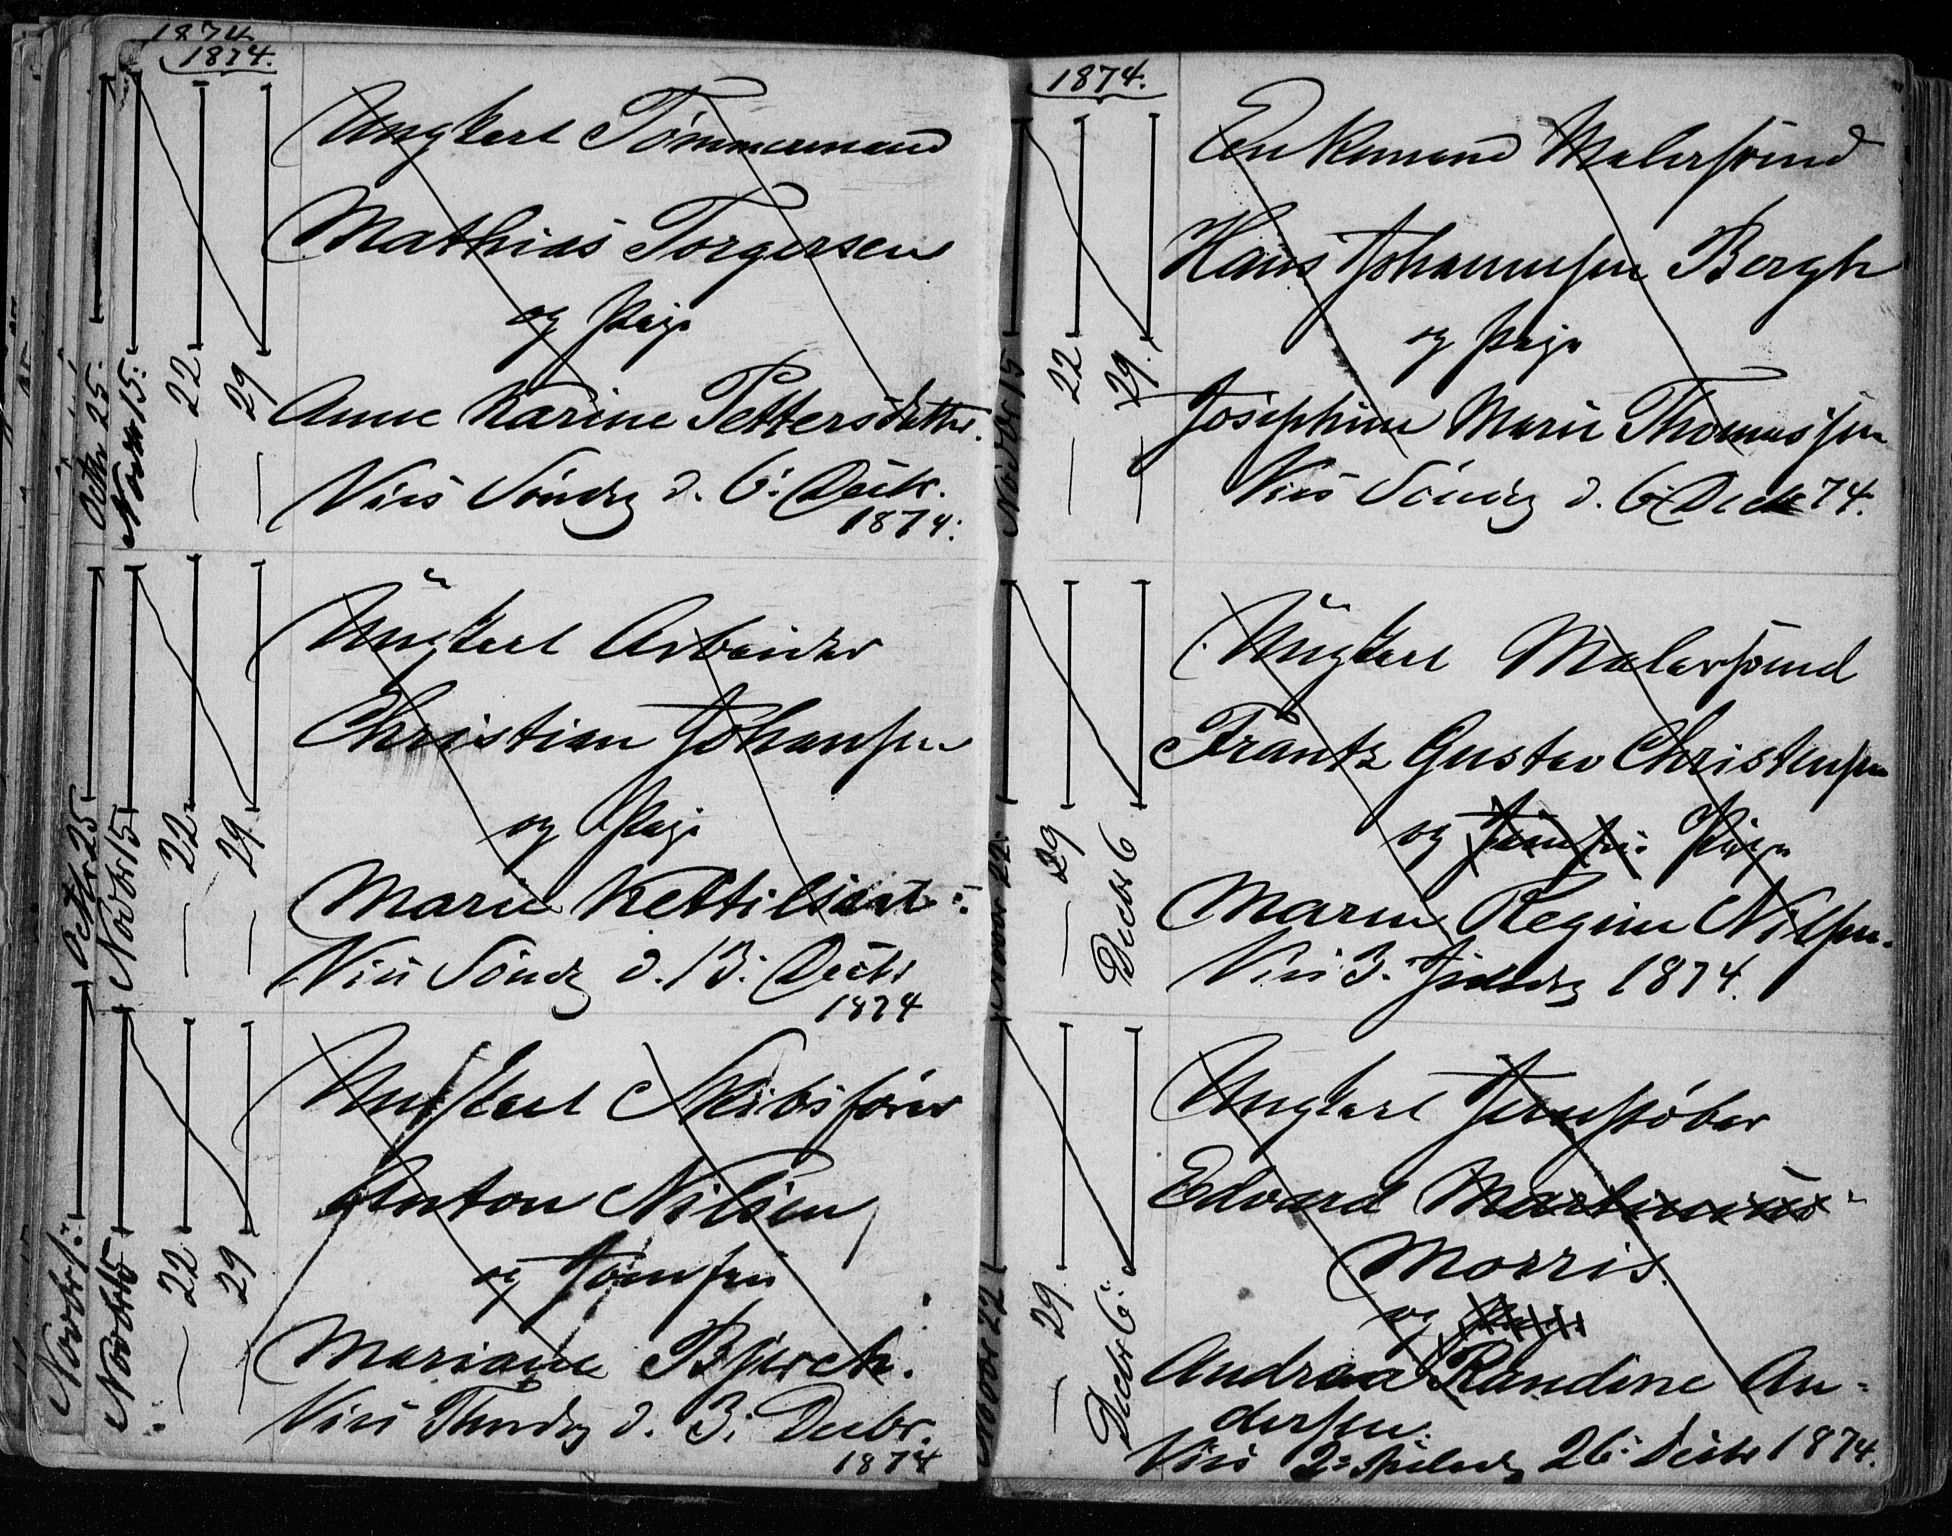 1874.
1874.
Octbr 25.
Novbr 15.
22
29
Ungkarl Tømmermand
Mathias Torgersen
og Pige
Anne Karine Pettersdatter.
Vies Søndag d. 6. Decbr.
1874.
Octbr 25
Novbr 15
22
29.
Ungkarl Arbeider
Christian Johansen
og Pige
Marie Kettilsdatr.
Vies Søndg d. 13. Decbr
1874
Novbr 1.
Novbr 15
22
29
Ungkarl Skibsfører
Anton Nilsen
og Jomfru
Mariane Bjerck.
Vies Thorsdg d. 3. Decbr.
1874
1874.
Novbr 15
22
29.
Enkemand Malersvend
Hans Johannesen Bergh
og Pige
Josephine Marie Thomassen
Vies Søndag d. 6. Decbr 74.
Novbr 22.
29
Decbr 6
Ungkarl Malersvend
Frantz Gustav Christensen
og Jomfru Pige
Maren Regine Nilsen.
Vies 3. Juledag 1874.
Novbr 22
29.
Decbr 6.
Ungkarl Jernstøber
Edvard Martinius
Morris.
og Pige
Andrea Randine An-
dersen.
Vies 2. Juledag 26. Decbr 1874.